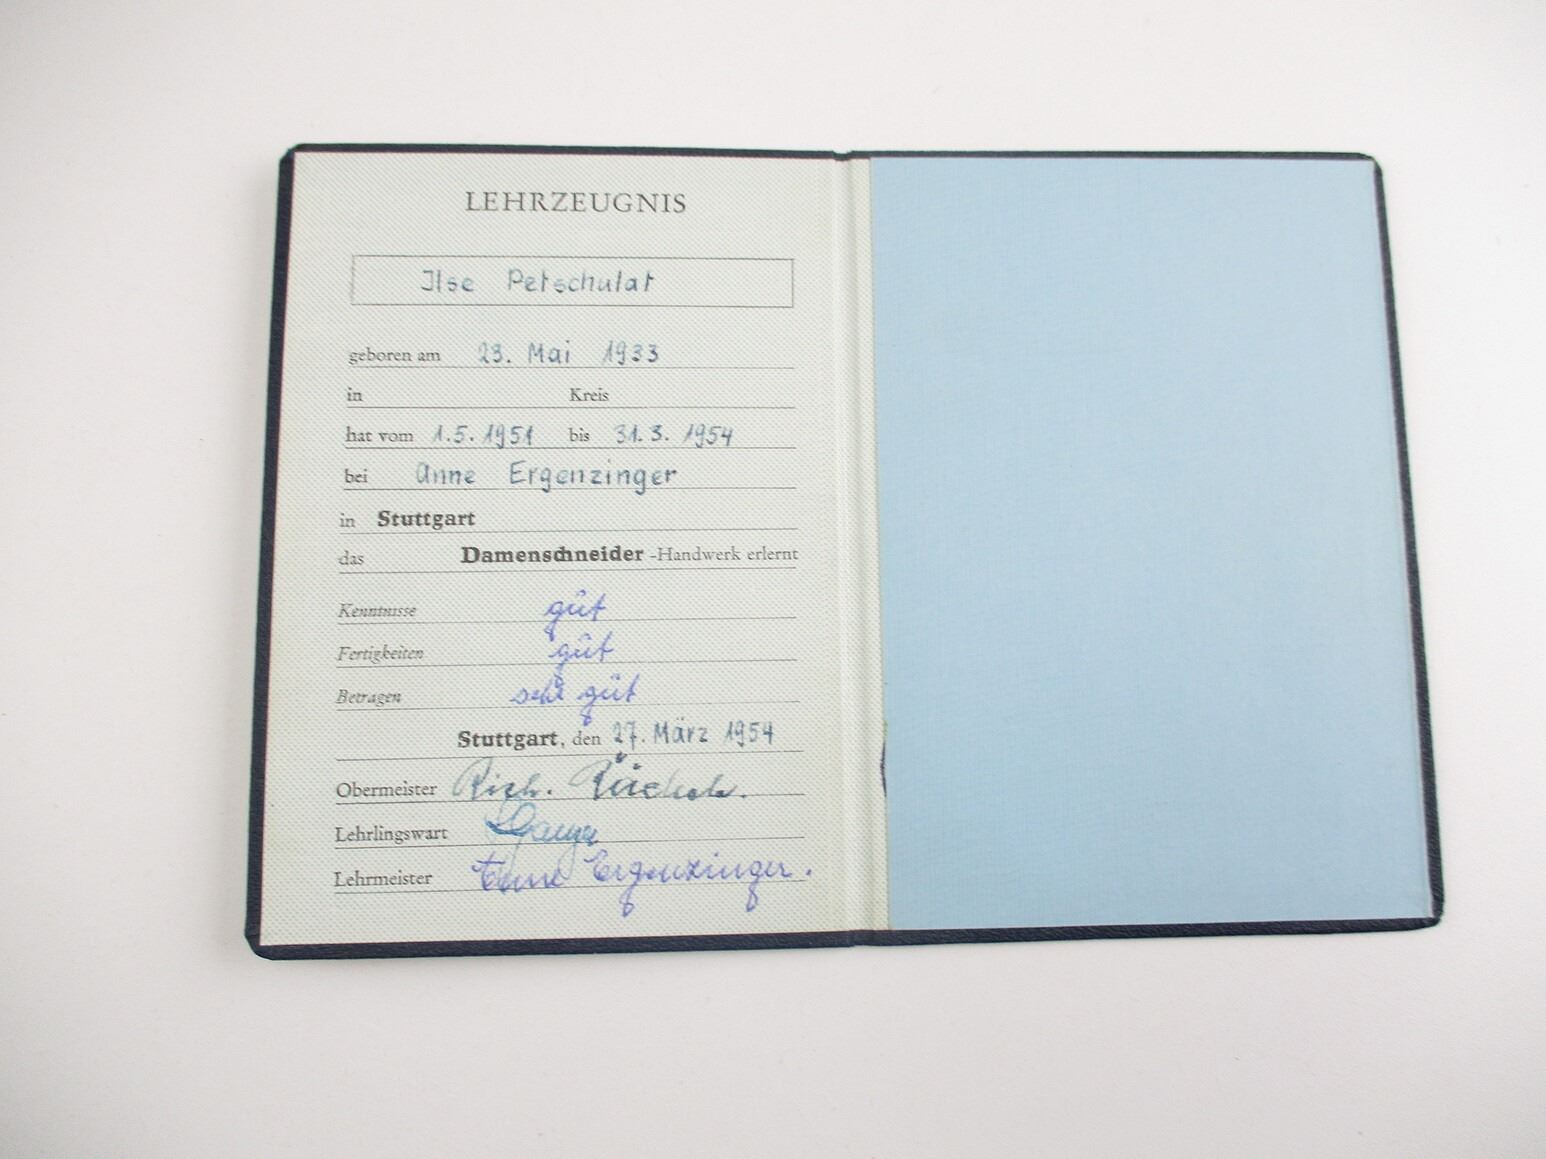 LEHRZEUGNIS
Ilse Petschulat
geboren am 23. Mai 1933
in Kreis
hat vom 1.5.1951 bis 31.3.1954
bei Anne Ergenzinger
in Stuttgart
das Damenschneider-Handwerk erlernt
Kenntnisse gut
Fertigkeiten gut
Betragen sehr gut
Stuttgart, den 27. März 1954
Obermeister Rich.
Lehrlingswart
Lehrmeister Anne Ergenzinger.